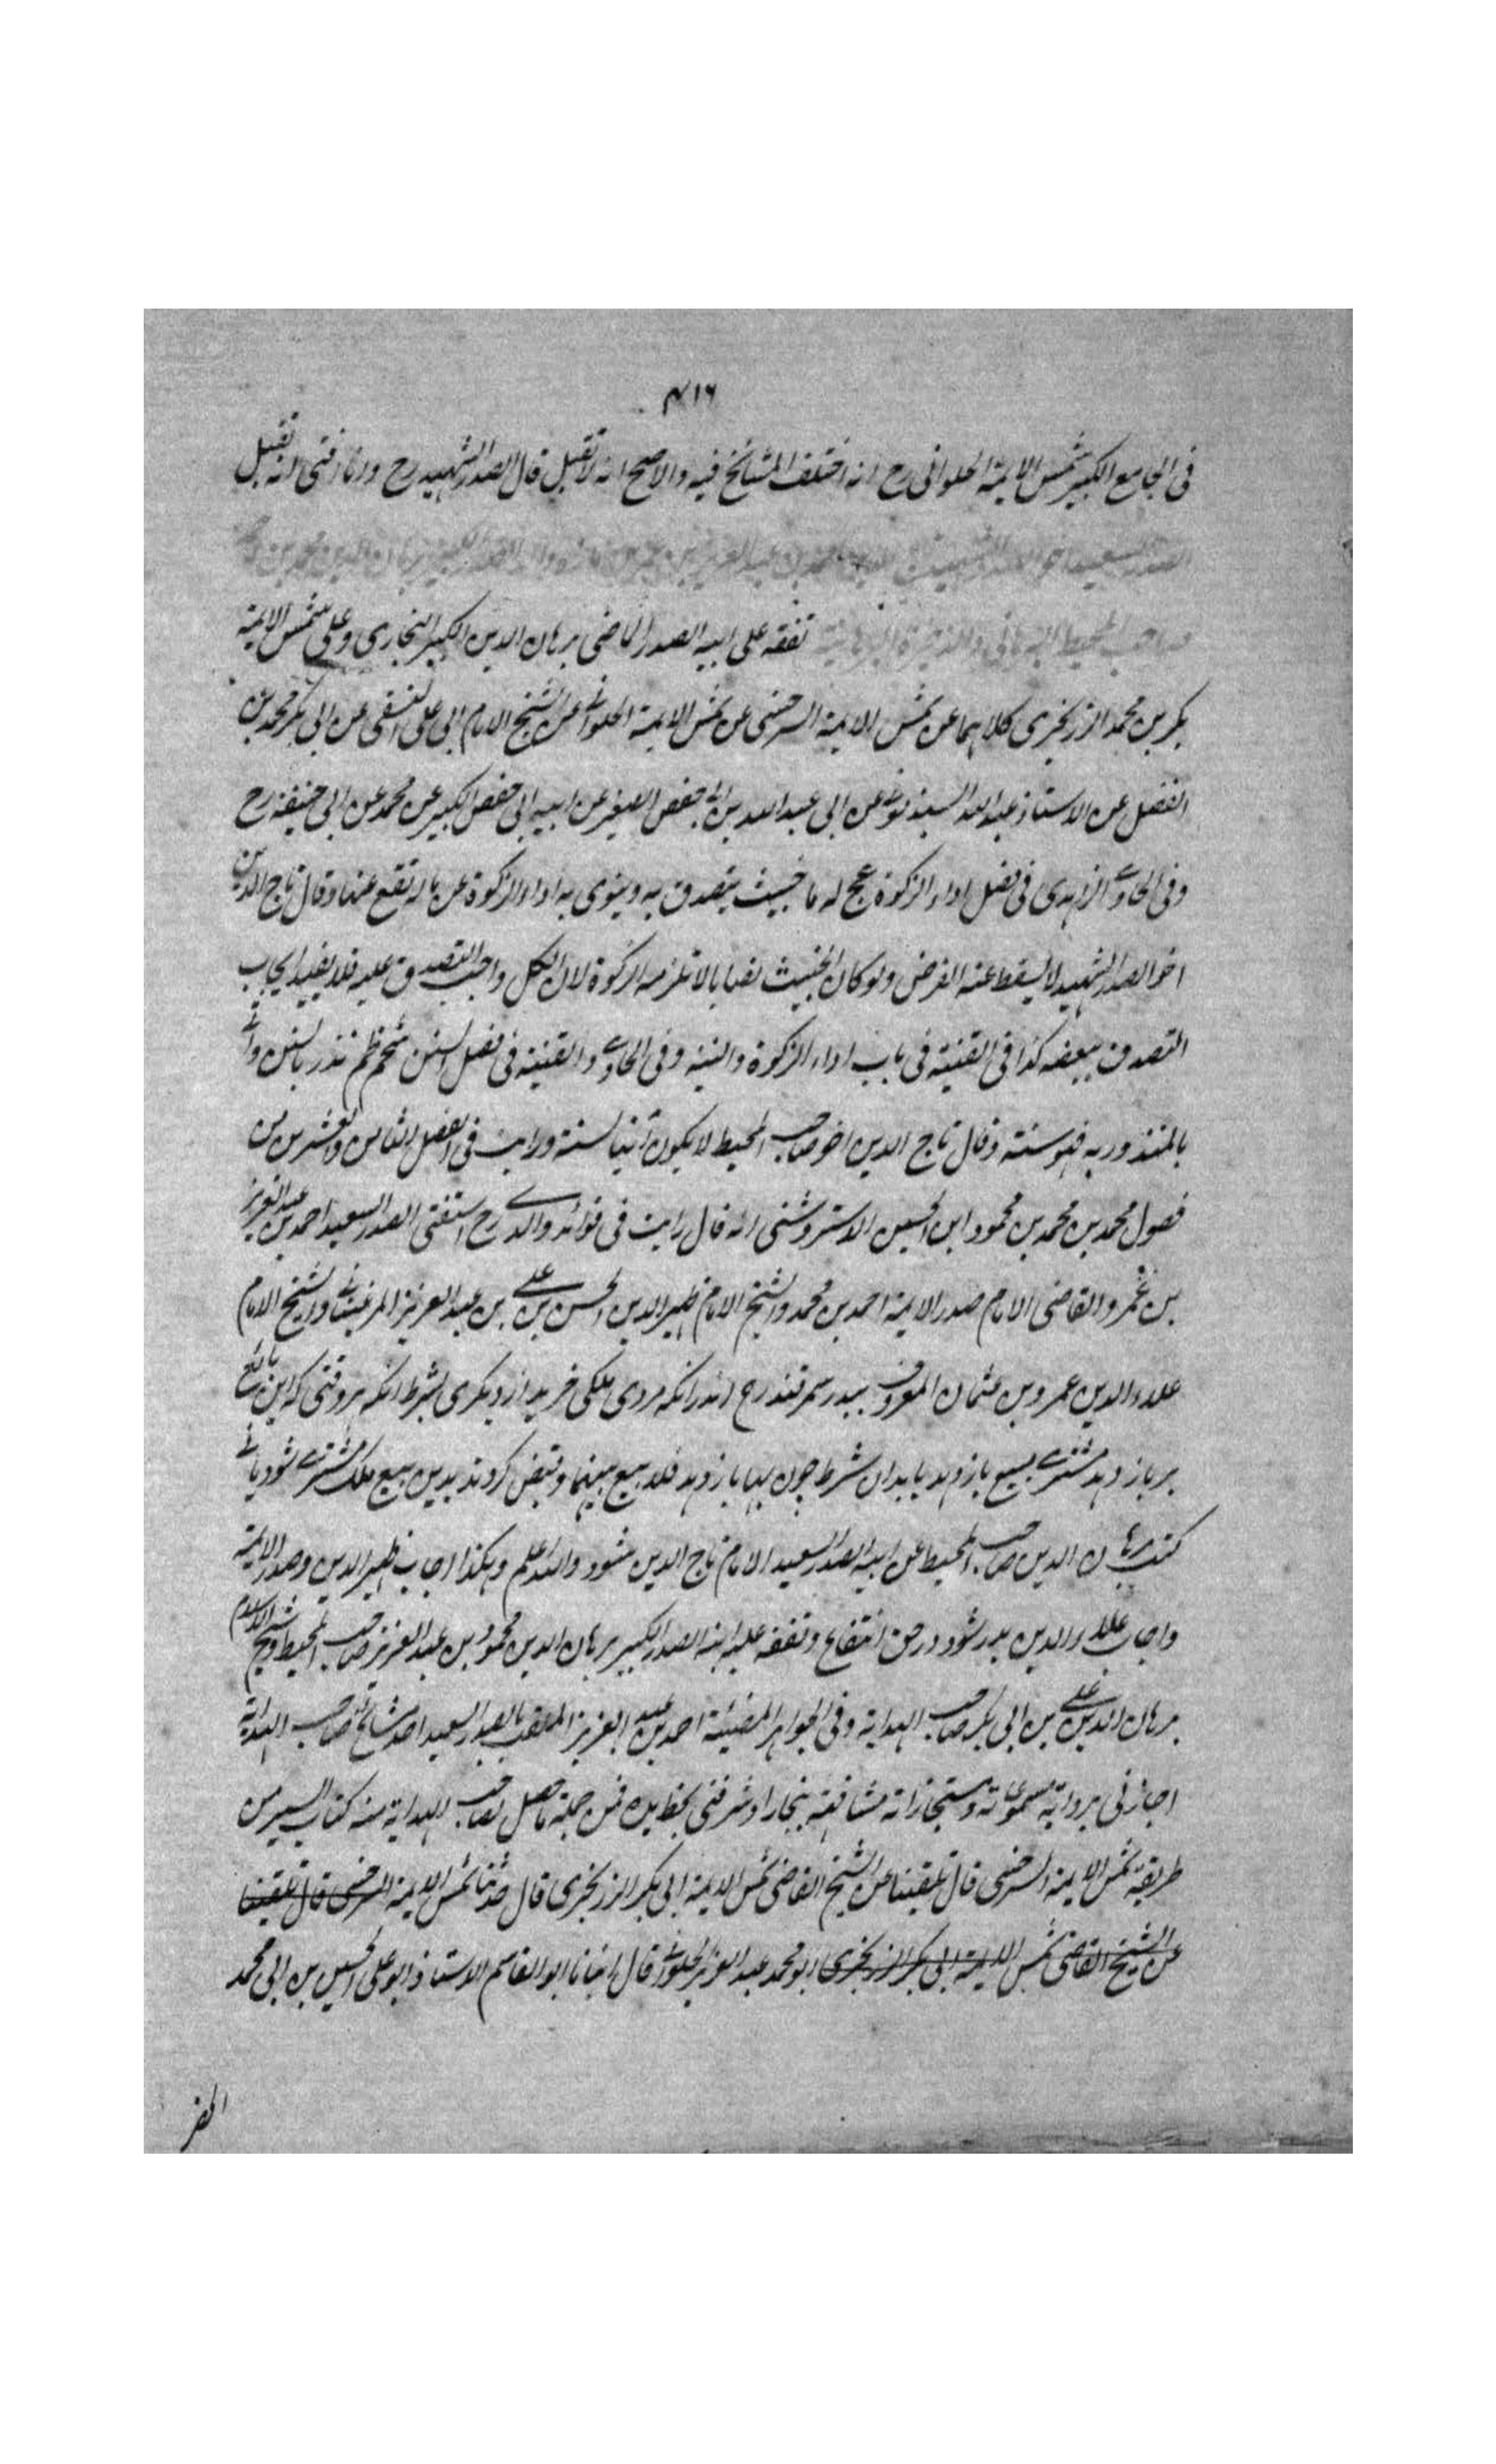 ٤١٦
فى الجامع الكبير شمس الايمة الحلوانى رح انه اختلف المشائخ فيه والاصح انه لا تقبل قال الصدر الشهيد رح وانا افتى انه تقبل
الصدر السعيد اخو الصدر الشهيد تاج الدين احمد بن عبد العزيز بن عمر بن مازه والد الصدر الكبير برهان الدين محمود بن
صاحب المحيط البرهانى والذخيرة البرهانية تفقه على ابيه الصدر الماضى برهان الدين الكبير البخارى وعلى شمس الايمة
بكر بن محمد الزرنجرى كلاهما عن شمس الايمة السرخسى عن شمس الايمة الحلوانى عن الشيخ الامام ابى على النسفى عن ابى بكر محمد بن
الفضل عن الاستاذ عبد الله السبذمونى عن ابى عبد الله بن ابى حفص الصغير عن ابيه ابى حفص الكبير عن محمد عن ابى حنيفة رح
وفى الحاوى الزاهدى فى فصل اداء الزكوة عج له ما خبيث يتصدق به وينوى به اداء الزكوة عن ماله تقع عنها وقال تاج الدين
اخو الصدر الشهيد لا يسقط عنه الفرض ولو كان الخبيث نصابا لا تلزمه الزكوة لان الكل واجب التصدق عليه فلا يفيد ايجاب
التصدق ببعضه كذا فى القنية فى باب اداء الزكوة والنية وفى الحاوى والقنية فى فصل السنن شخم ظم نذر بالسنن واتى
بالمنذور به فهو سنة وقال تاج الدين اخو صاحب المحيط لا يكون آتيا لسنة ورايت فى الفصل الثامن والعشرين من
فصول محمد بن محمد بن محمود ابن الحسين الاستروشنى انه قال رايت فى فوائد والدى رح استفتى الصدر السعيد احمد بن عبد العزيز
بن عمر والقاضى الامام صدر الايمة احمد بن محمد والشيخ الامام ظهير الدين الحسن بن على بن عبد العزيز المرغينانى والشيخ الامام
علاء الدين عمرو بن عثمان المعروف ببدر سمرقند رح اندرانكه مردى ملكى خريد از ديكرى بشرط انكه هر وقتى كه اين بائع
بر باز دهد مشترى مبيع باز دهد يا بدان شرط چون بها باز دهد فلا بيع بينهما وقبض كردند بدين بيع ملك مشترى شود يا نى
كتب برهان الدين صاحب المحيط عن ابيه الصدر السعيد الامام تاج الدين شود والله اعلم وهكذا اجاب ظهير الدين وصدر الايمة
واجاب علاء الدين بدر شود در حق انتفاع وتفقه عليه ابنه الصدر الكبير برهان الدين محمود بن عبد العزيز صاحب المحيط وشيخ الاسلام
برهان الدين على بن ابى بكر صاحب الهداية وفى الجواهر المضيئة احمد بن عبد العزيز الملقب بالصدر السعيد احد مشائخ صاحب الهداية
اجازنى برواية مسموعاته ومستجازاته مشافهة ببخارا وشرفنى بخط يده فمن جملة ما حصل لصاحب الهداية منه كتاب السير من
طريقة شمس الايمة السرخسى قال تلقينا عن الشيخ القاضى شمس الايمة ابى بكر الزرنجرى قال حدثنا شمس الايمة السرخسى قال تلقينا
عن الشيخ القاضى شمس الايمة ابى بكر الزرنجرى ابو محمد عبد العزيز الحلوانى قال انبانا ابو القاسم الاستاذ ابو على الحسين بن ابى محمد
الخضر